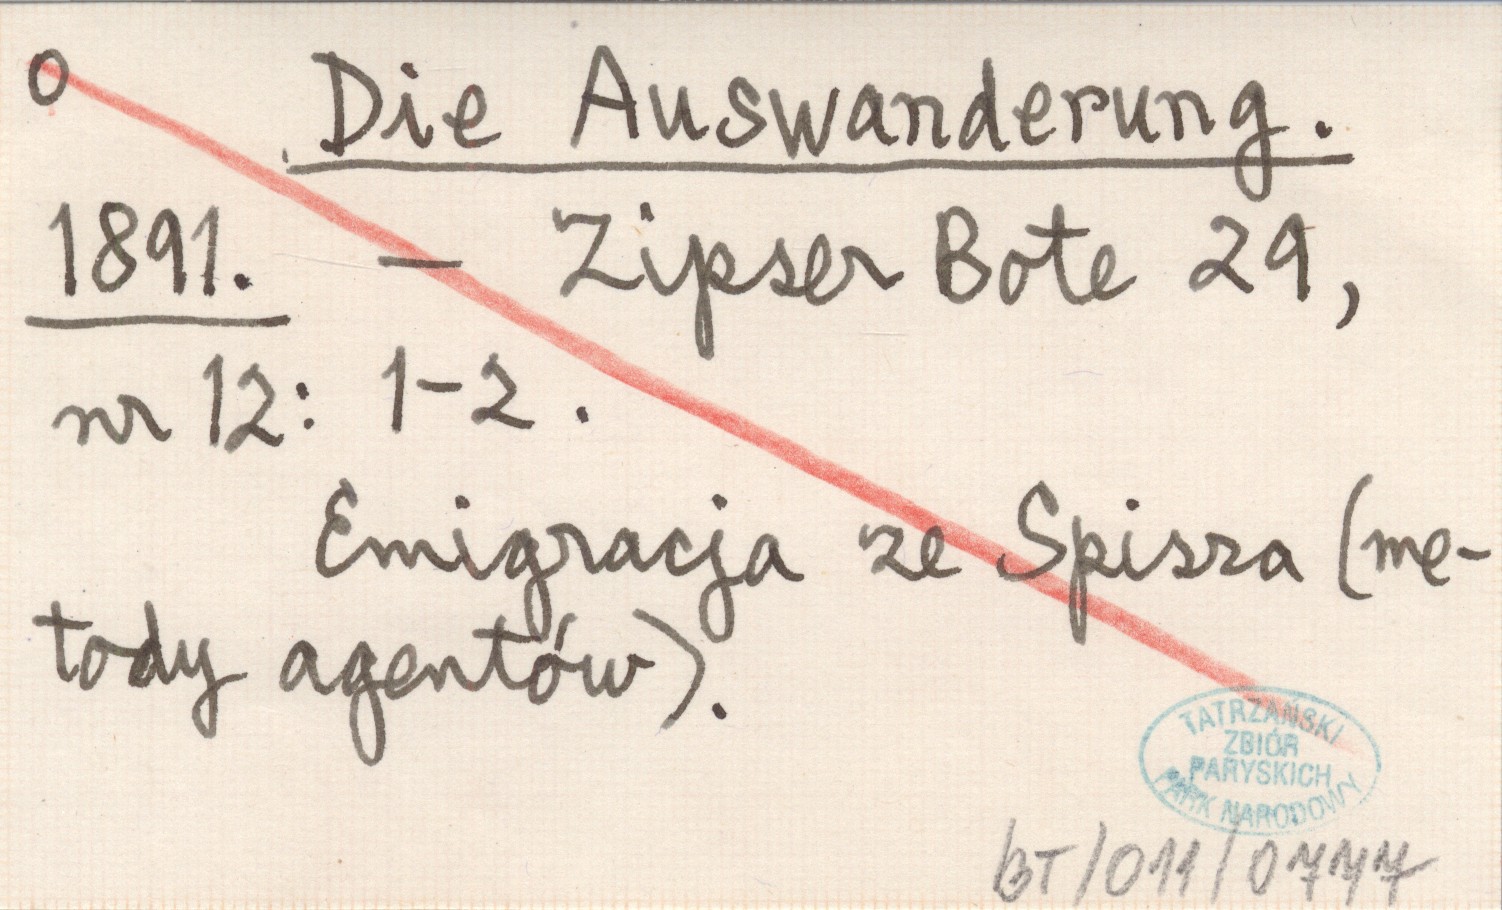 O Die Auswanderung.
1891. – Zipser Bote 29,
nr 12: 1-2.
Emigracja ze Spisza (me-
tody agentów).
TATRZAŃSKI
ZBIÓR
PARYSKICH
PARK NARODOWY
BT/011/0777